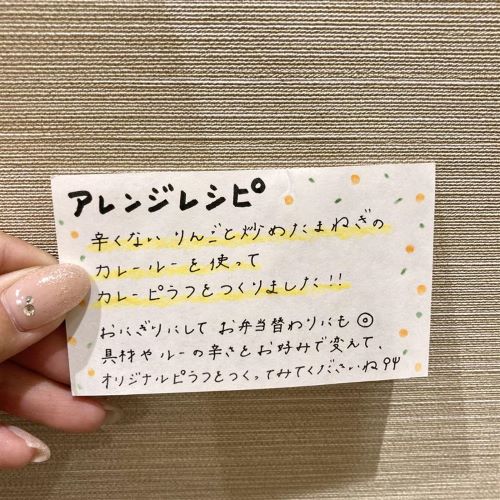 アレンジレシピ
辛くない りんごと炒めたまねぎの
カレールーを使って
カレーピラフをつくりました!!
おにぎりにして お弁当替わりにも◎
具材やルーの辛さをお好みで変えて、
オリジナルピラフをつくってみてくださいね